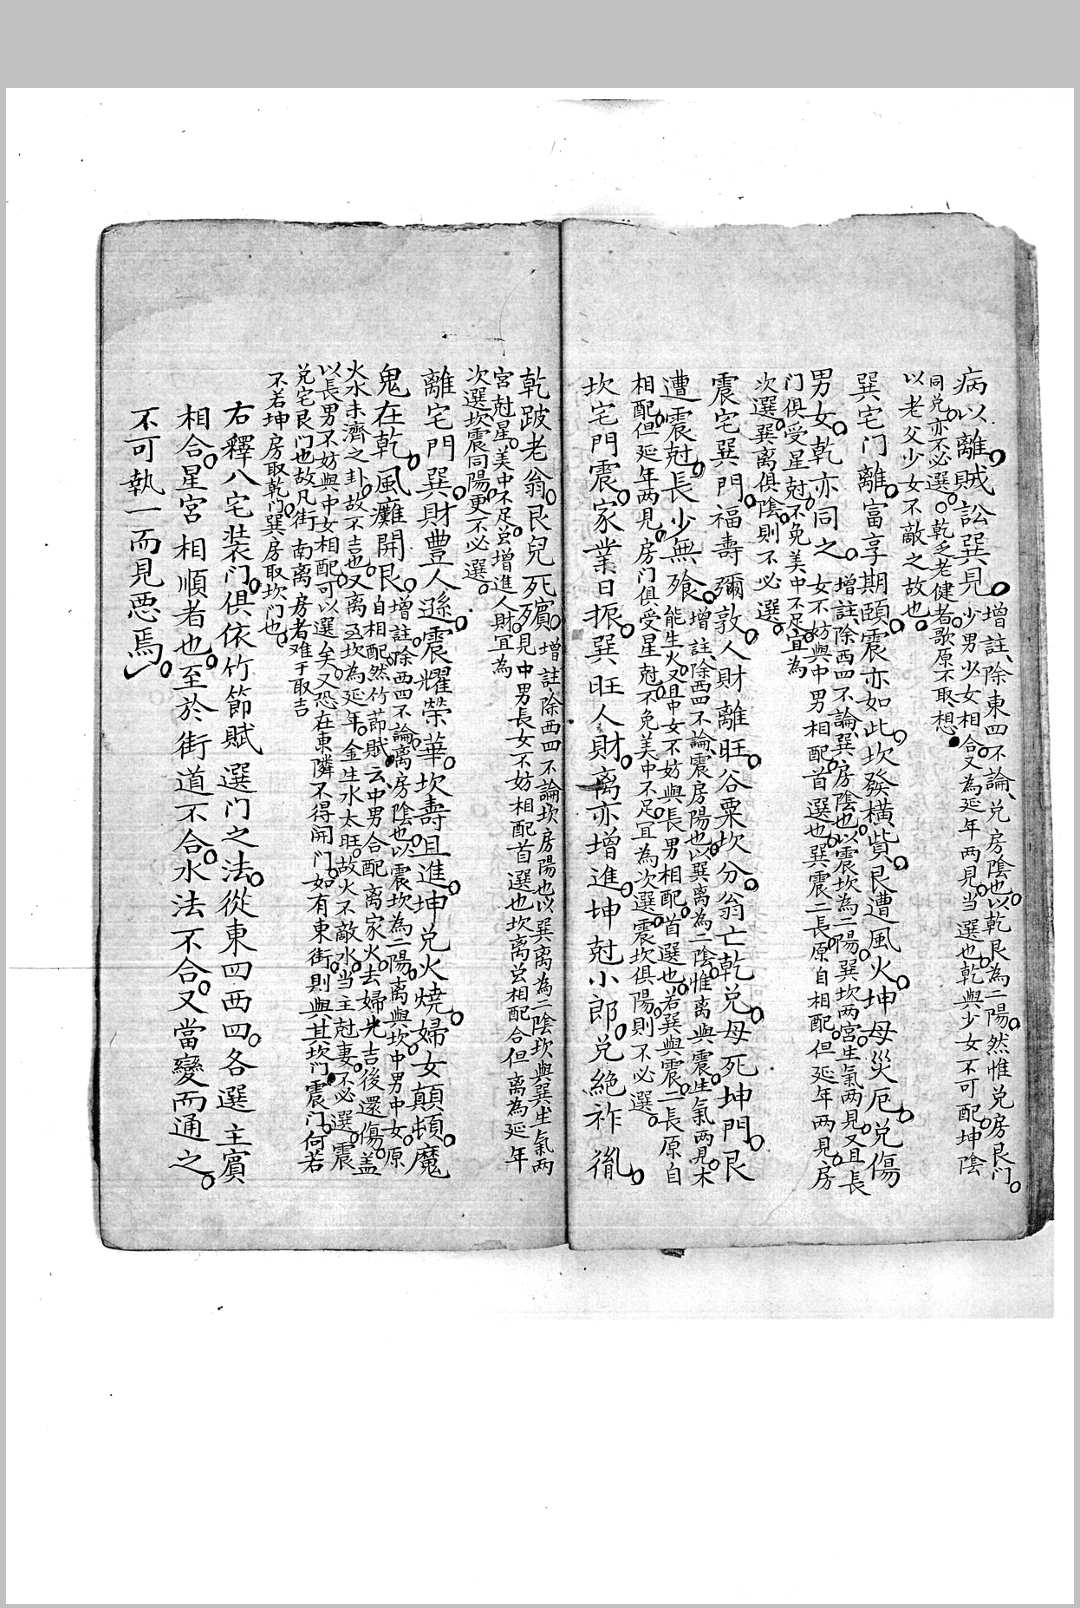 病。以離賊訟巽見。增註、除東四不論、兑房陰也。以乾艮為二陽。然惟兑房艮门。
少男少女相合。又為延年两見。当選也。乾與少女不可配。坤陰
同兑。亦不必選。○乾乏老健者。歌原不取想。
以老父少女不敵之故也。
巽宅门離。富享期頤。震亦如此。坎發橫貲。艮遭風火。坤母災厄。兑傷
男女。乾亦同之。增註除西四不論巽房陰也。以震坎為二陽。巽坎两宮生氣两見。又且長
女不妨與中男相配。首選也。巽震二長。原自相配。但延年两見。房
门俱受星尅。不免美中不足。宜為
次選。巽离俱陰。則不必選。
震宅巽門。福壽彌敦。人財離旺。谷粟坎分。翁亡乾兑。母死坤門。艮
遭震尅。長少無飱。增註除西四不論、震房陽也。以巽离為二陰。惟离與震。生氣两見。木
能生火。又且中女不妨與長男相配。首選也。若巽與震。二長原自
相配。但延年两見。房门俱受星尅。不免美中不足。宜為次選。震坎俱陽。則不必選。
坎宅門震。家業日振。巽旺人財。离亦增進。坤尅小郎。兑絶祚胤。
乾跛老翁。艮兒死殯。增註、除西四不論坎房陽也。以巽离為二陰坎與巽生氣两
見。中男長女不妨相配首選也坎离总相配合但离為延年
宮尅星。美中不足。总增進人財宜為
次選。坎震同陽。更不必選。
離宅門巽。財豊人遜。震耀榮華。坎壽且進。坤兑火燒。婦女顛頓。魔
鬼在乾。風癱開艮。增註、除西四不論。离房陰也。以震坎為二陽。离與坎。中男中女。原
自相配。然竹節賦云。中男合配离家火。去婦先吉後還傷。盖
火水未濟之卦。故不吉也。又离至坎為延年。金生水太旺。故火不敵水。当主尅妻。不必選。震
以長男不妨與中女相配。可以選矣。又恐在東隣不得開门。如有東街。則與其坎门。震门。何若
兑宅艮门也。故凡街南离房者。难于取吉
不若坤房取乾门。巽房取坎门也。
右釋八宅装门。俱依竹節賦選门之法。從東四西四。各選主賓
相合。星宮相順者也。至於街道不合。水法不合。又當變而通之。
不可執一而見惡焉。